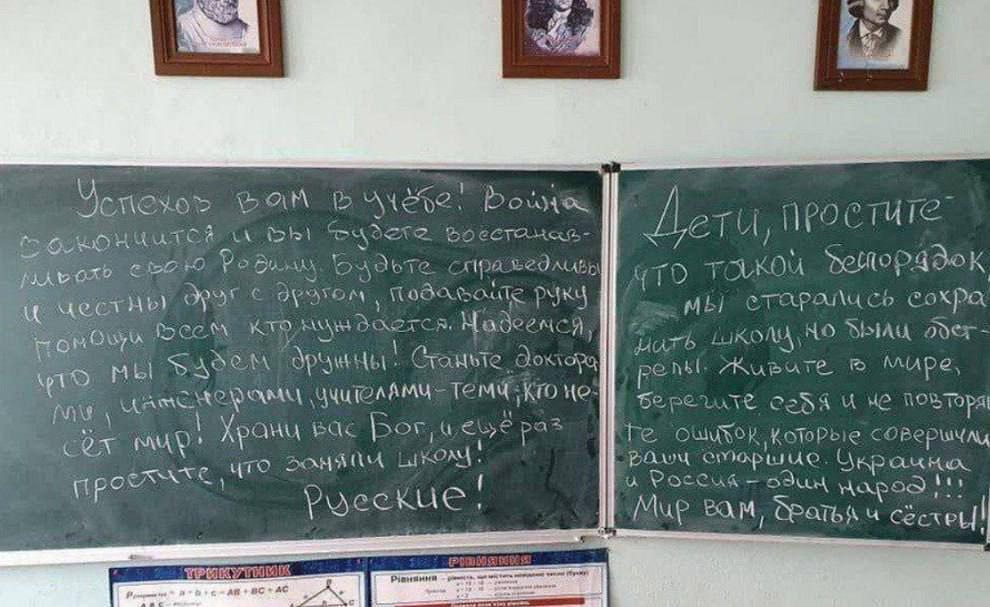 Успехов вам в учёбе! Война
закончится и вы будете восстанав-
ливать свою Родину. Будьте справедливы
и честны друг с другом, подавайте руку
помощи всем кто нуждается. Надеемся,
что мы будем дружны! Станьте доктора-
ми, инженерами, учителями-теми, кто не-
сёт мир! Храни вас Бог, и ещё раз
простите, что заняли школу!
Русские!
Дети, простите
что такой беспорядок,
мы старались сохра
нить школу, но были обст-
релы. Живите в мире,
берегите себя и не повторяй
те ошибок, которые совершили
ваши старшие. Украина
и Россия - один народ!!!
Мир вам, братья и сёстры!
ТРИКУТНИК
= a + b + c = AB + BC + AC
РІВНЯННЯ
Рівняння – рівність, що містить невідоме число (букву)